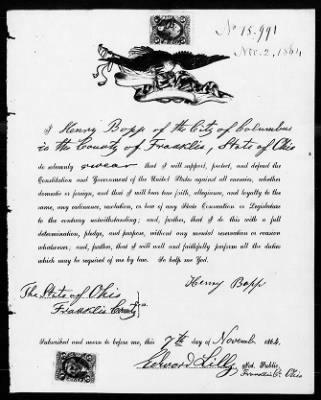 No 15.991
Nov. 2, 1864
I Henry Bopp of the City of Columbus
in the County of Franklin, State of Ohio
do solemnly swear that I will support, protect, and defend the
Constitution and Government of the United States against all enemies, whether
domestic or foreign, and that I will bear true faith, allegiance, and loyalty to the
same, any ordinance, resolution, or law of any State Convention or Legislature
to the contrary notwithstanding; and, further, that I do this with a full
determination, pledge, and purpose, without any mental reservation or evasion
whatsoever; and, further, that I will well and faithfully perform all the duties
which may be required of me by law. So help me God.
Henry Bopp
The State of Ohio
Franklin County
Subscribed and sworn to before me, this 7th day of November 1864,
Edward Lilly Not. Public,
Franklin Co. Ohio